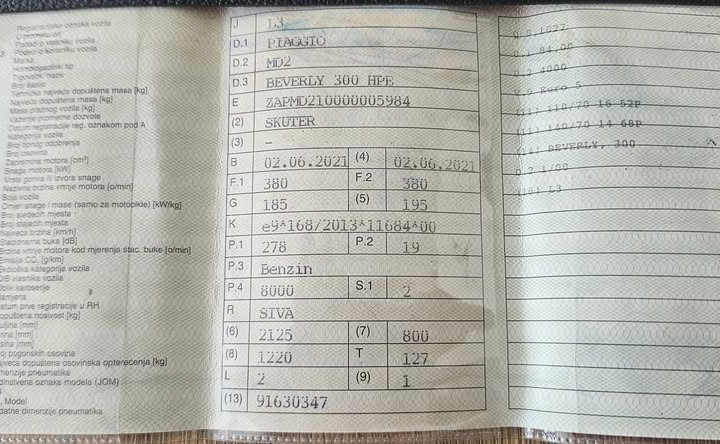 Registracijska oznaka vozila
Marka
Homologacijski tip
Broj šasije
Tehnička najveća dopuštena masa [kg]
Najveća dopuštena masa [kg]
Masa praznog vozila [kg]
Važenje prometne dozvole
Datum registracije reg. oznakom pod A
Kategorija vozila
Broj osovina
Snaga motora [kW]
Vrsta goriva ili izvora snage
Nazivna brzina vrtnje motora [o/min]
Boja vozila
Omjer snage i mase (samo za motocikle) [kW/kg]
Broj sjedećih mjesta
Broj stajaćih mjesta
Najveća brzina [km/h]
Stacionarna buka [dB]
Brzina vrtnje motora kod mjerenja stac. buke [o/min]
Emisija CO₂ [g/km]
Ekološka kategorija vozila
OIB vlasnika vozila
Oblik karoserije
Namjena
Datum prve registracije u RH
dopuštena nosivost [kg]
pogonskih osovina
najveća dopuštena osovinska opterećenja [kg]
dimenzije pneumatika
jedinstvena oznaka modela (JOM)
, Model
dodatne dimenzije pneumatika
J L3
D.1 PIAGGIO
D.2 MD2
D.3 BEVERLY 300 HPE
E ZAPMD210000005984
(2) SKUTER
(3) –
B 02.06.2021 (4) 02.06.2021
F.1 380 F.2 380
G 185 (5) 195
K e9*168/2013*11684*00
P.1 278 P.2 19
P.3 Benzin
P.4 8000 S.1 2
R SIVA
(6) 2125 (7) 800
(8) 1220 T 127
L 2 (9) 1
(13) 91630347
0.1027
84.00
4000
V.9 Euro 5
(11) 110/70 16 52P
(11) 140/70 14 68P
(14) BEVERLY, 300
1/00
(16) L3